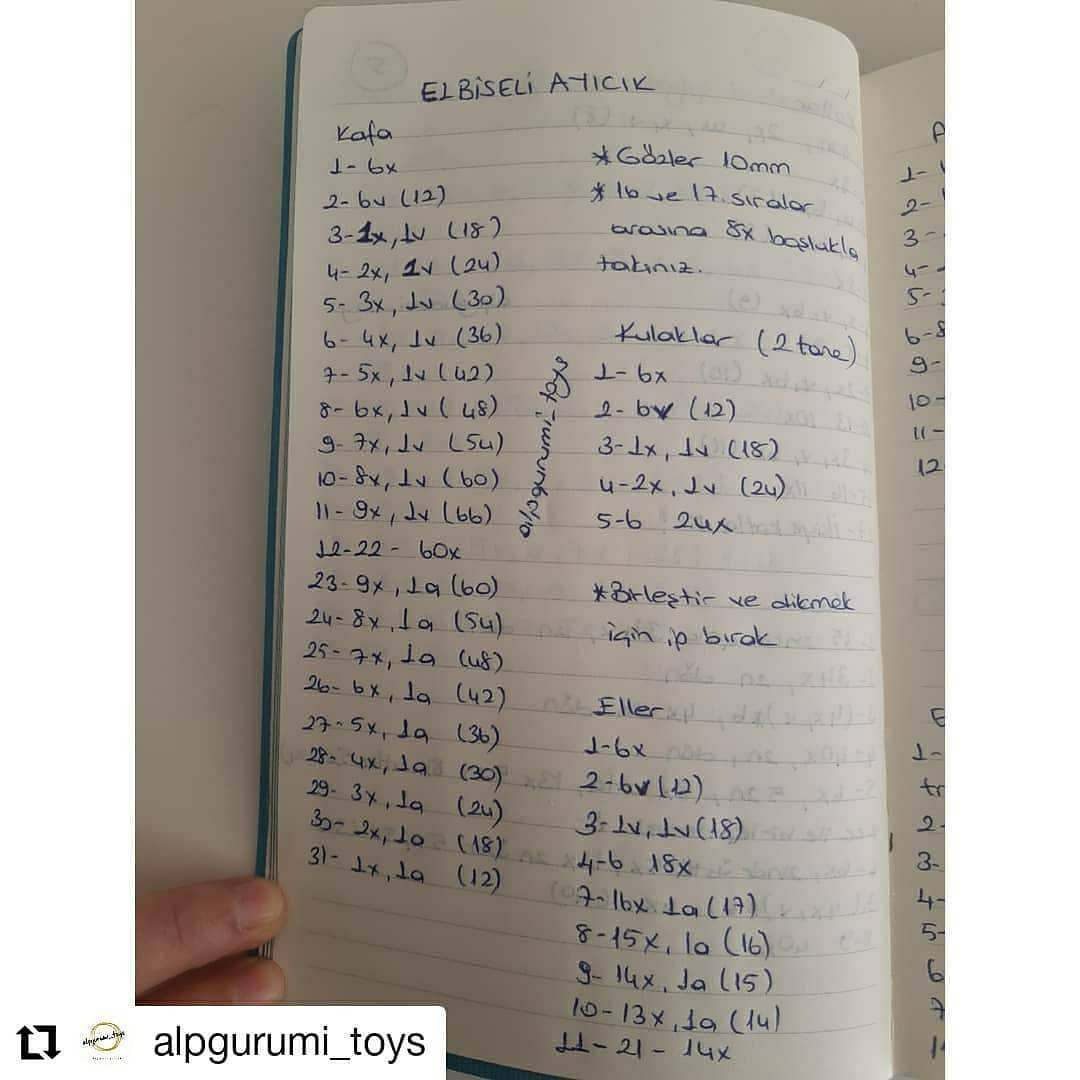 ELBİSELİ AYICIK
Kafa
1- 6x
2- 6v (12)
3- 1x, 1v (18)
4- 2x, 1v (24)
5- 3x, 1v (30)
6- 4x, 1v (36)
7- 5x, 1v (42)
8- 6x, 1v (48)
9- 7x, 1v (54)
10- 8x, 1v (60)
11- 9x, 1v (66)
12-22- 60x
23- 9x, 1a (60)
24- 8x, 1a (54)
25- 7x, 1a (48)
26- 6x, 1a (42)
27- 5x, 1a (36)
28- 4x, 1a (30)
29- 3x, 1a (24)
30- 2x, 1a (18)
31- 1x, 1a (12)
alpgurumi-toys
*Gözler 10mm
*16 ve 17. sıralar
arasına 8x boşlukla
takınız.
Kulaklar (2 tane)
1- 6x
2- 6v (12)
3- 1x, 1v (18)
4- 2x, 1v (24)
5-6 24x
*Birleştir ve dikmek
için ip bırak
Eller
1- 6x
2- 6v (12)
3- 1v, 1v (18)
4-6 18x
7- 16x 1a (17)
8- 15x, 1a (16)
9- 14x, 1a (15)
10- 13x, 1a (14)
11-21- 14x
1-
2-
3-
4-
5-
6-8
9-
10-
11-
12
1-
tr
2-
3-
4-
5-
6
7
alpgurumi_toys